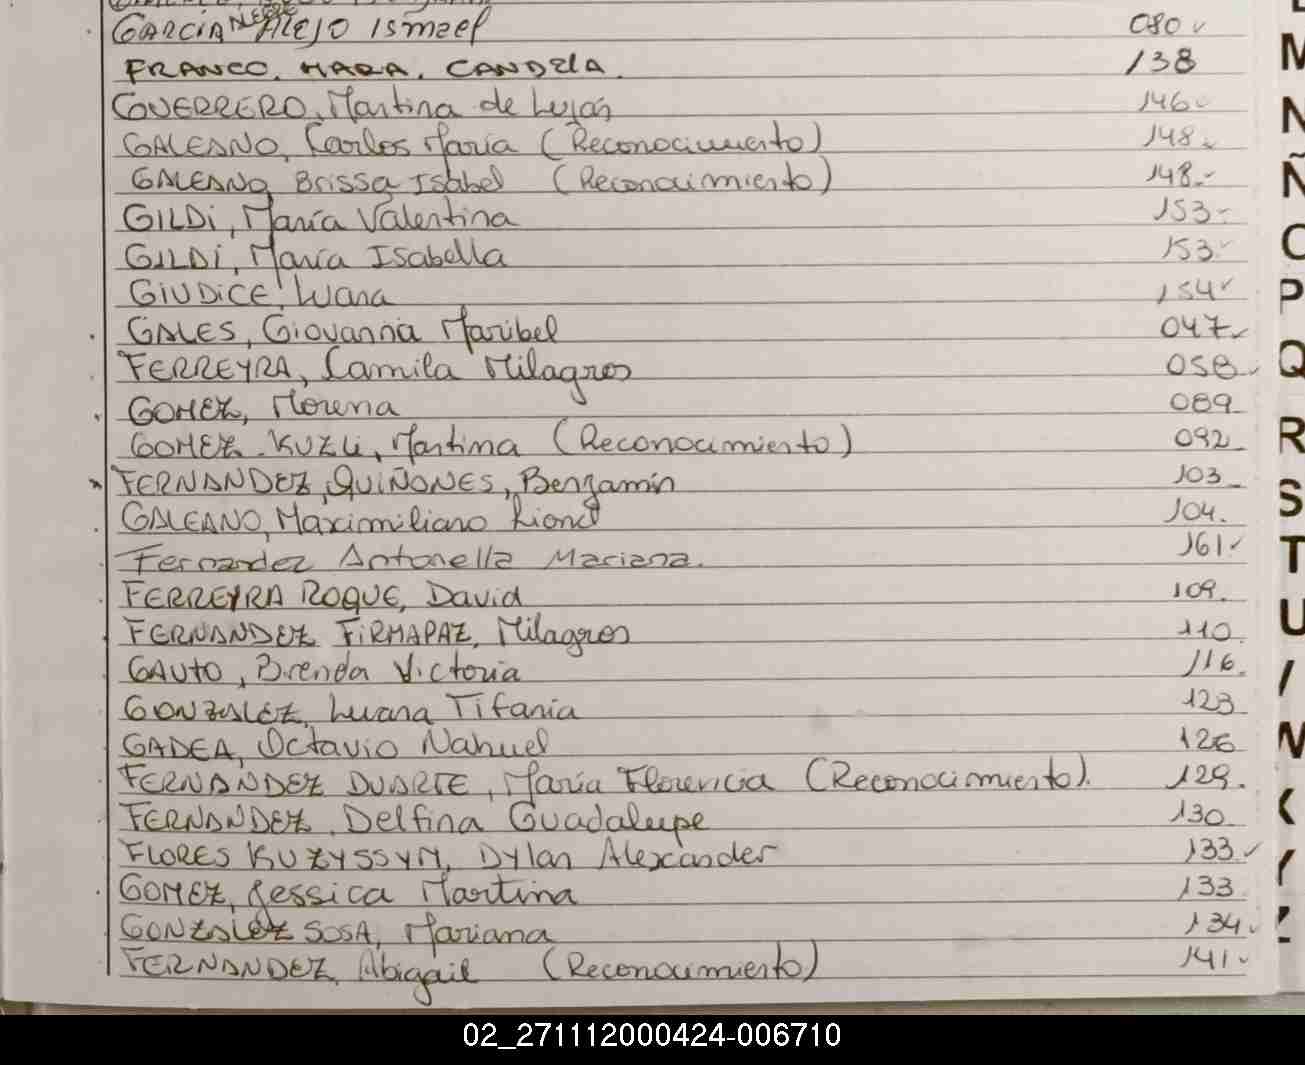 GARCÍA NEGRE ALEJO Ismael 080
FRANCO. MARA. CANDELA. 138
GUERRERO, Martina de Luján 146
GALEANO, Carlos María (Reconocimiento) 148
GALEANO, Brissa Isabel (Reconocimiento) 148
GILDI, María Valentina 153
GILDI, María Isabella 153
GIUDICE, Luana 154
GALES, Giovanna Maribel 047
FERREYRA, Camila Milagros 058
GOMEZ, Morena 089
GOMEZ KUZLI, Martina (Reconocimiento) 092
FERNANDEZ, QUIÑONES, Benjamín 103
GALEANO, Maximiliano Lionel 104.
Fernandez Antonella Mariana. 161
FERREYRA ROQUE, David 109.
FERNANDEZ FIRMAPAZ, Milagros 110
GAUTO, Brenda Victoria 116.
GONZALEZ, Luana Tifania 123
GADEA, Octavio Nahuel 126
FERNANDEZ DUARTE, María Florencia (Reconocimiento). 129.
FERNANDEZ, Delfina Guadalupe 130
FLORES KUZYSSYN, Dylan Alexander 133
GOMEZ, Jessica Martina 133
GONZALEZ SOSA, Mariana 134
FERNANDEZ, Abigail (Reconocimiento) 141
M
N
Ñ
O
P
Q
R
S
T
U
Y
Z
02_271112000424-006710